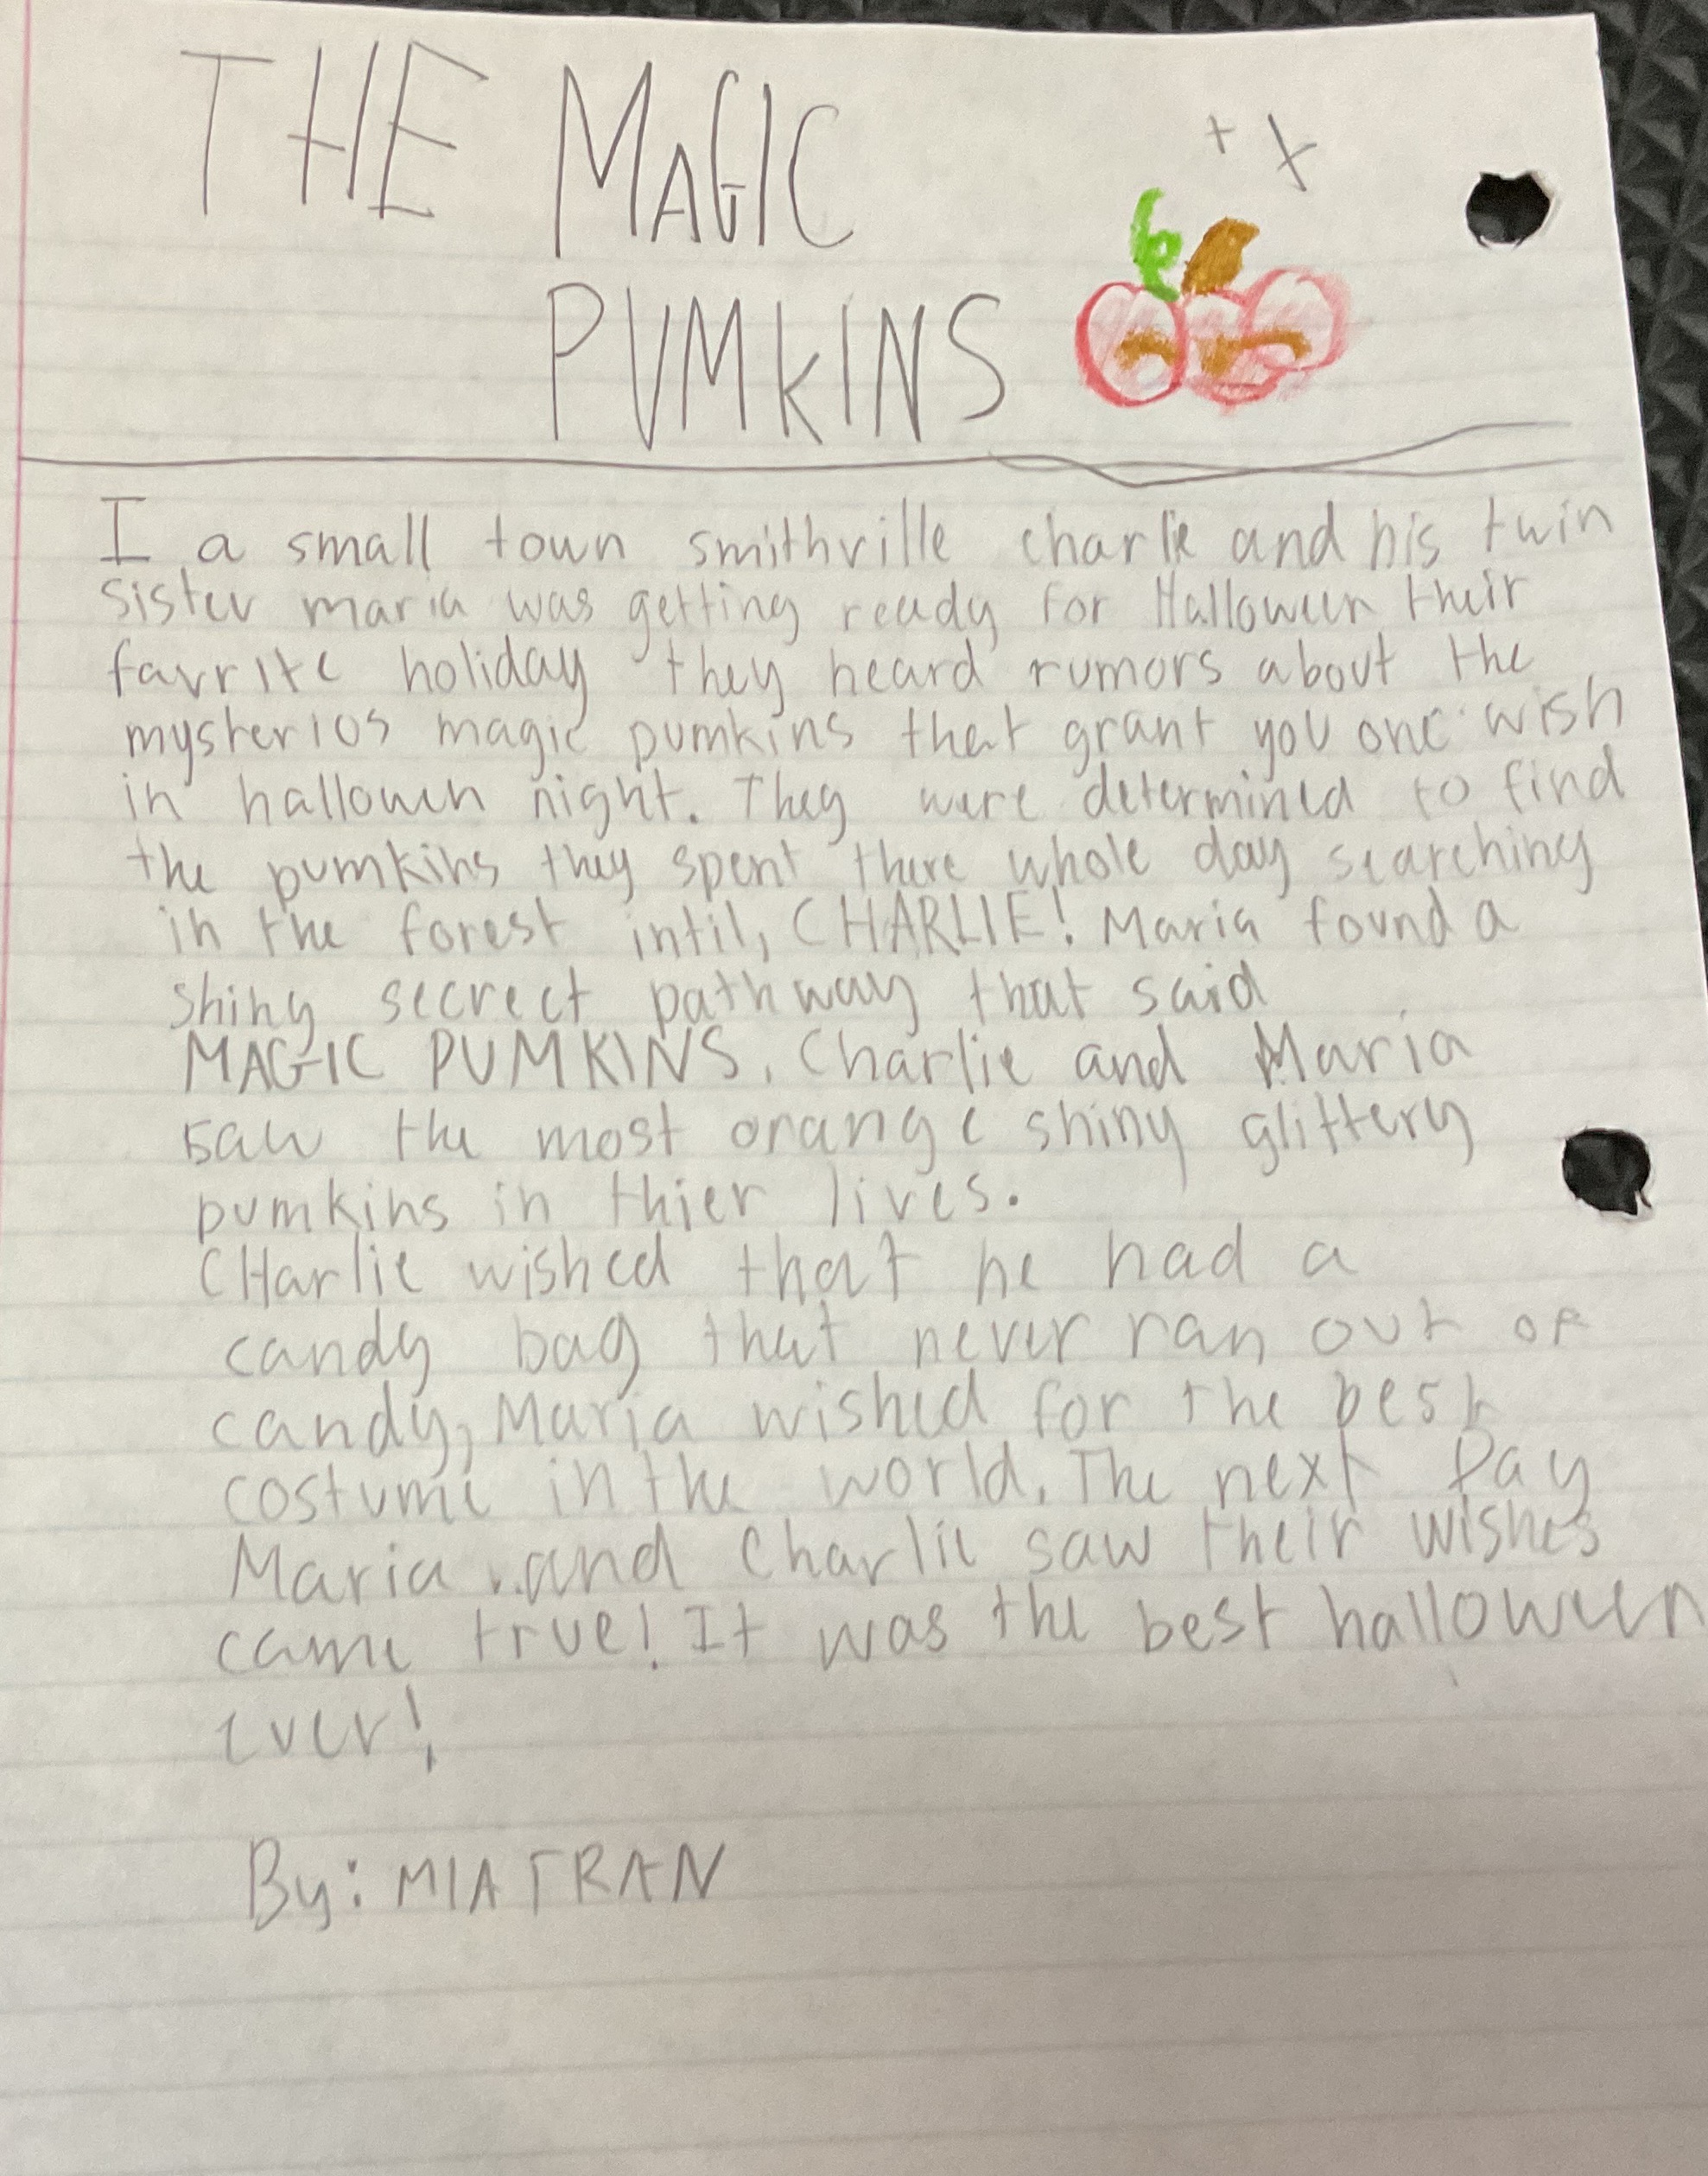 THE MAGIC
PUMKINS
I a small town smithville charlie and his twin
sister maria was getting ready for Halloween their
favrite holiday they heard rumors about the
mysterios magic pumkins that grant you one wish
in hallowen night. They were determined to find
the pumkins they spent there whole day searching
in the forest intil, CHARLIE! Maria found a
shiny secrect pathway that said
MAGIC PUMKINS. Charlie and Maria
saw the most orange shiny glittery
pumkins in thier lives.
CHarlie wished that he had a
candy bag that never ran out of
candy, Maria wished for the best
costume in the world. The next Day
Maria ..and Charlie saw their wishes
came true! It was the best halloween
ever!
By: MIA TRAN